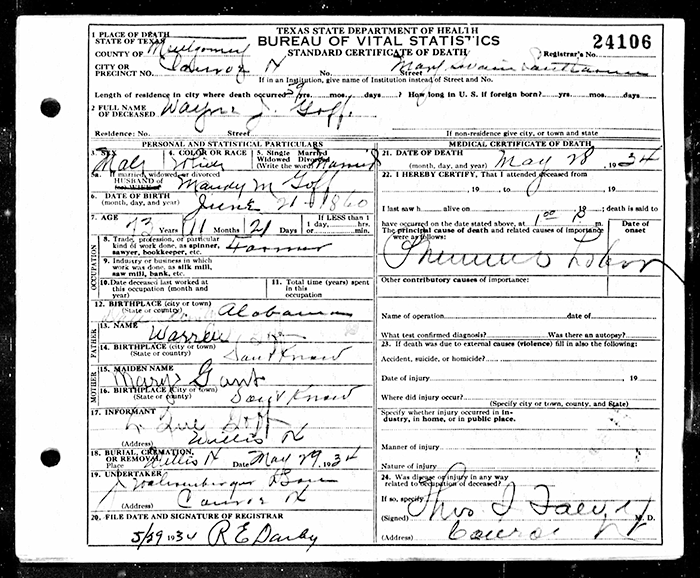 TEXAS STATE DEPARTMENT OF HEALTH
BUREAU OF VITAL STATISTICS
STANDARD CERTIFICATE OF DEATH
24106
1 PLACE OF DEATH
STATE OF TEXAS
COUNTY OF Montgomery
CITY OR
PRECINCT NO. Conroe
Street
Registrar's No.
If in an Institution, give name of Institution instead of Street and No.
Length of residence in city where death occurred yrs. mos. days? How long in U. S. if foreign born? yrs. mos. days
2 FULL NAME
OF DECEASED Wayne J. Goff
Residence: No. Street If non-residence give city, or town and state
PERSONAL AND STATISTICAL PARTICULARS
3. SEX Male
4. COLOR OR RACE White
5. Single Married
Widowed Divorced
(Write the word) Married
5a. If married, widowed or divorced
HUSBAND OF
(or) WIFE Mandy M Goff
6. DATE OF BIRTH
(month, day, and year) June 21 - 1860
7. AGE 73 Years 11 Months 21 Days
If LESS than
1 day, hrs.
or min.
OCCUPATION
8. Trade, profession, or particular
kind of work done, as spinner,
sawyer, bookkeeper, etc. Farmer
9. Industry or business in which
work was done, as silk mill,
saw mill, bank, etc.
10. Date deceased last worked at
this occupation (month and
year)
11. Total time (years)
spent in this
occupation
12. BIRTHPLACE (city or town)
(State or country) Alabama
FATHER
13. NAME Warren
14. BIRTHPLACE (city or town)
(State or country) Don't Know
MOTHER
15. MAIDEN
NAME Mary Gant
16. BIRTHPLACE (City or town)
(State or country) Don't Know
17. INFORMANT Goff
(Address) Willis
18. BURIAL, CREMATION,
OR REMOVAL
Place Willis Date May 29, 1934
19. UNDERTAKER
(Address) Conroe
20. FILE DATE AND SIGNATURE OF REGISTRAR
5/29 1934 R E Darby
MEDICAL CERTIFICATE OF DEATH
21. DATE OF DEATH
(month, day, and year) May 28, 1934
22. I HEREBY CERTIFY, That I attended deceased from
, 19 to , 19
I last saw h alive on , 19 ; death is said to
have occurred on the date stated above, at 1 00 P m.
The principal cause of death and related causes of importance
were as follows:
Date of
onset
Other contributory causes of importance:
Name of operation date of
What test confirmed diagnosis? Was there an autopsy?
23. If death was due to external causes (violence) fill in also the following:
Accident, suicide, or homicide?
Date of injury , 19
Where did injury occur?
(Specify city or town, county, and State)
Specify whether injury occurred in In-
dustry, in home, or in public place.
Manner of injury
Nature of injury
24. Was disease or injury in any way
related to occupation of deceased?
If so, specify
(Signed) M. D.
(Address) Conroe